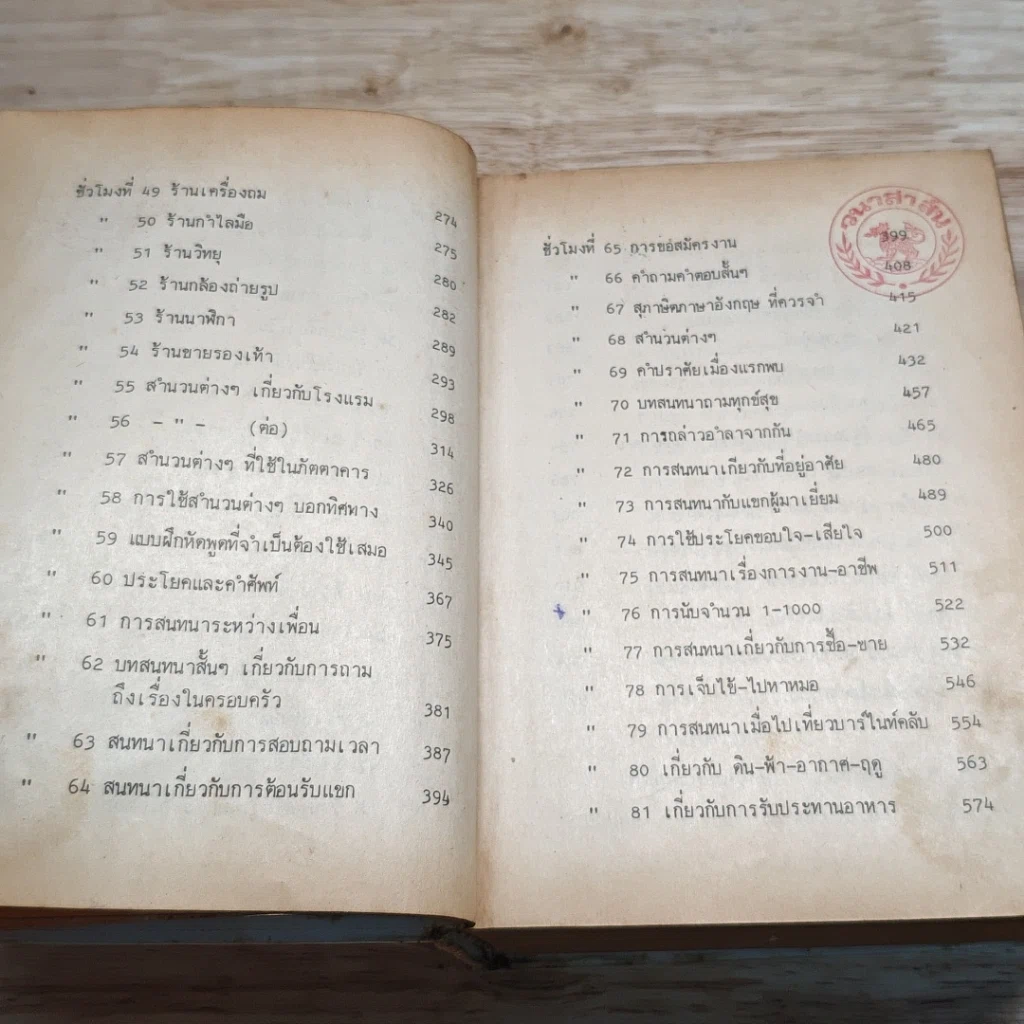 ชั่วโมงที่ 49 ร้านเครื่องถม 274
" 50 ร้านกำไลมือ 275
" 51 ร้านวิทยุ 280
" 52 ร้านกล้องถ่ายรูป 282
" 53 ร้านนาฬิกา 289
" 54 ร้านขายรองเท้า 293
" 55 สำนวนต่างๆ เกี่ยวกับโรงแรม 298
" 56 - " - (ต่อ) 314
" 57 สำนวนต่างๆ ที่ใช้ในภัตตาคาร 326
" 58 การใช้สำนวนต่างๆ บอกทิศทาง 340
" 59 แบบฝึกหัดพูดที่จำเป็นต้องใช้เสมอ 345
" 60 ประโยคและคำศัพท์ 367
" 61 การสนทนาระหว่างเพื่อน 375
" 62 บทสนทนาสั้นๆ เกี่ยวกับการถาม
ถึงเรื่องในครอบครัว 381
" 63 สนทนาเกี่ยวกับการสอบถามเวลา 387
" 64 สนทนาเกี่ยวกับการต้อนรับแขก 394
วนาสาส์น
ชั่วโมงที่ 65 การขอสมัครงาน 399
" 66 คำถามคำตอบสั้นๆ 408
" 67 สุภาษิตภาษาอังกฤษ ที่ควรจำ 415
" 68 สำนวนต่างๆ 421
" 69 คำปราศัยเมื่องแรกพบ 432
" 70 บทสนทนาถามทุกข์สุข 457
" 71 การกล่าวอำลาจากกัน 465
" 72 การสนทนาเกี่ยวกับที่อยู่อาศัย 480
" 73 การสนทนากับแขกผู้มาเยี่ยม 489
" 74 การใช้ประโยคขอบใจ-เสียใจ 500
" 75 การสนทนาเรื่องการงาน-อาชีพ 511
" 76 การนับจำนวน 1-1000 522
" 77 การสนทนาเกี่ยวกับการซื้อ-ขาย 532
" 78 การเจ็บไข้-ไปหาหมอ 546
" 79 การสนทนาเมื่อไปเที่ยวบาร์ไนท์คลับ 554
" 80 เกี่ยวกับ ดิน-ฟ้า-อากาศ-ฤดู 563
" 81 เกี่ยวกับการรับประทานอาหาร 574